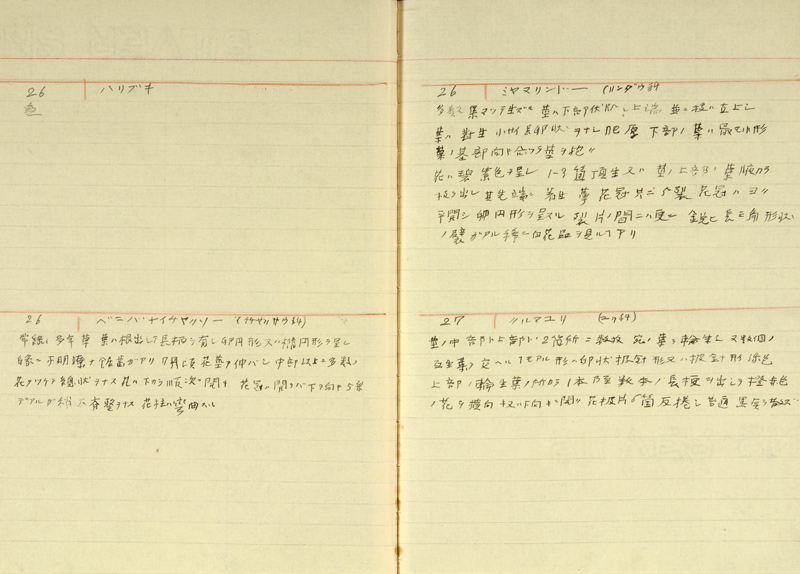 26 ハリブキ
色
26 ベニバナイチヤクソー (イチヤクサウ科)
常緑 多年草 葉ハ根出シテ長柄ヲ有シ卵円形又ハ楕円形ヲ呈シ
縁ニ不明瞭ナ鋸歯ガアリ 7月頃花茎ヲ伸バシ中部以上ニ多数ノ
花ヲツケテ総状ヲナス 花ハ下カラ順次ニ開キ 花冠ハ開ケバ下ヲ向キ5裂
花柱ハ彎曲スル
26 ミヤマリンドー (リンダウ科
多数集マツテ生ズル 茎ハ下部 伏臥シ上端 直立シ
葉ハ対生 小サイ長卵状ヲナシ肥厚 下部ノ葉ハ 形
葉ノ基部向ヒ合ツテ茎ヲ抱
花ハ碧紫色ヲ呈シ 1-3箇頂生又ハ茎ノ上部ノ葉腋カラ
枝ヲ出シ其先端ニ着生 萼 花冠共ニ5裂 花冠ハヨク
平開シ卵円形ヲ呈スル 裂片ノ間ニハ更ニ鋭ヒ長三角形状
ノ襞ガアル 稀ニ白花品ヲ見ルコトアリ
27 クルマユリ (ユリ科)
茎ノ中部ト上部ト2箇所ニ数枚宛ノ葉ヲ輪生シ又数個ノ
互生葉ヲ交ヘルコトモアル 形ハ卵状披針形又ハ披針形 緑色
上部ノ輪生葉ノ所カラ1本乃至数本ノ長梗ヲ出シテ橙赤色
ノ花ヲ横向又ハ下向キニ開ク 花被片6箇反捲シ普通黒点ヲ散